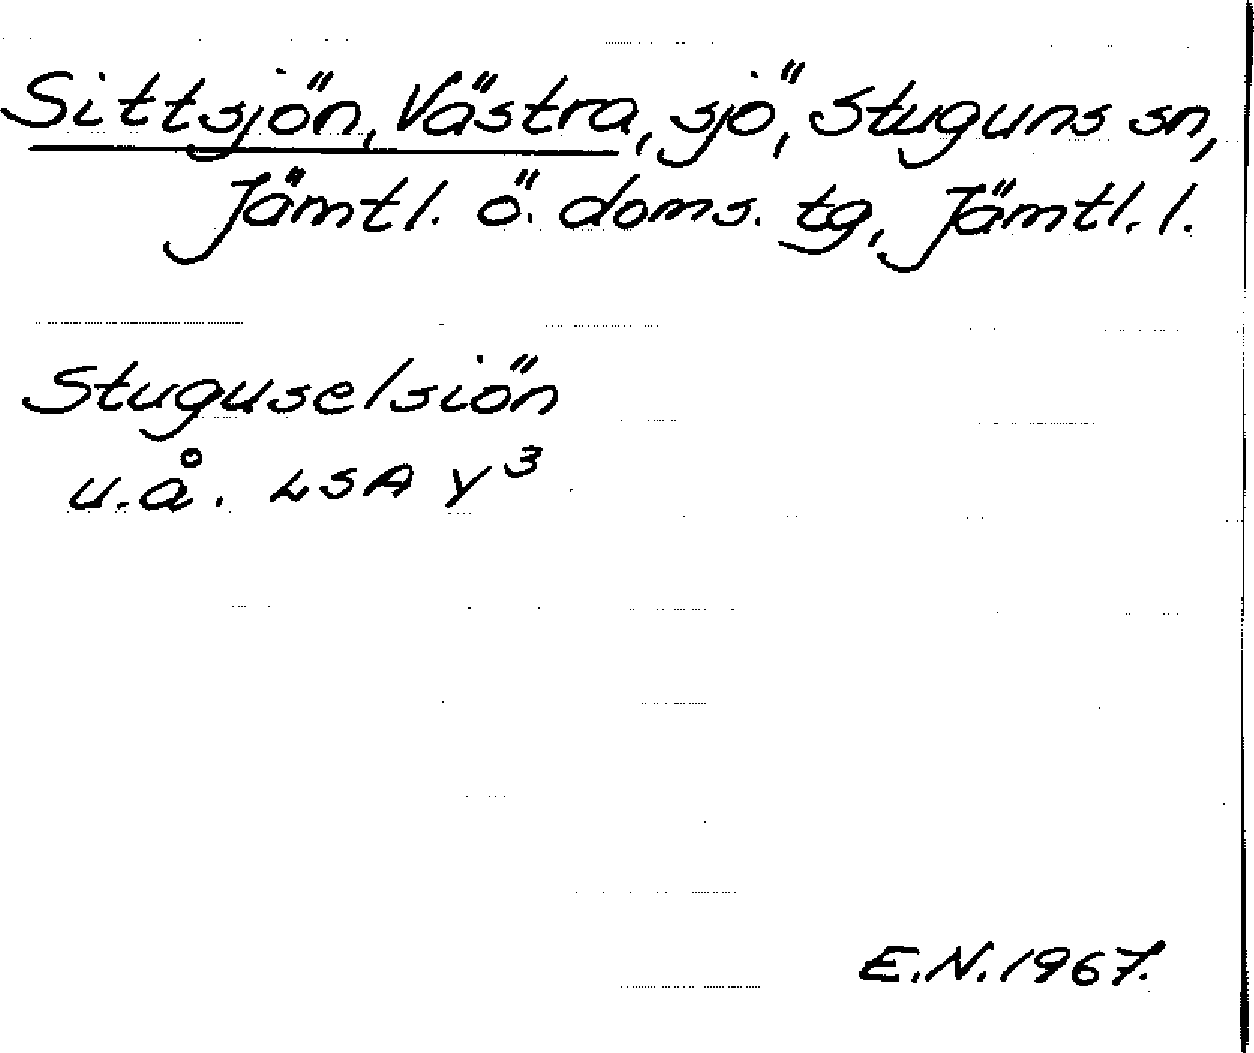 Sittsjön, Västra, sjö, Stuguns sn,
Jämtl. ö. doms. tg, Jämtl. l.
Stuguselsiön
u.å. LSA Y3
E.N. 1967.